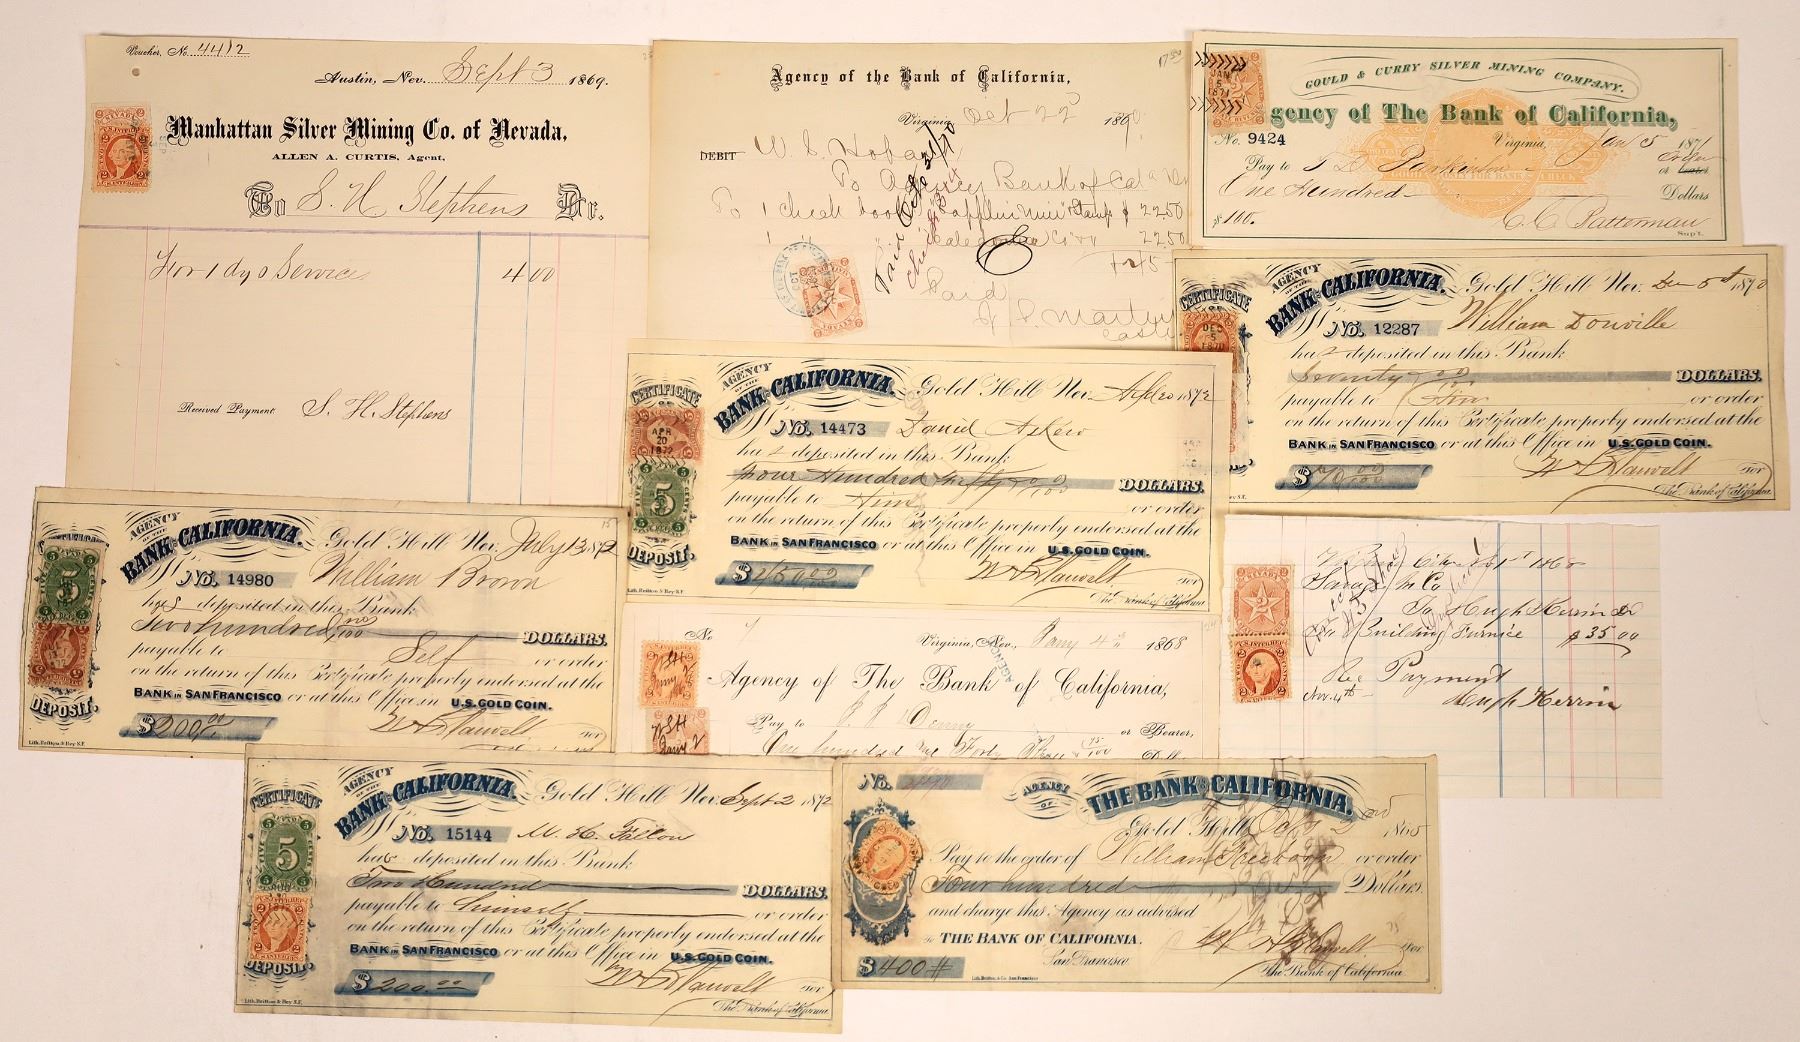 Voucher, No. 4412
Austin, Nev. Sept 3 1869.
Manhattan Silver Mining Co. of Nevada,
ALLEN A. CURTIS, Agent,
To S. H. Stephens Dr.
For 1 dys Services 4 00
Received Payment, S. H. Stephens
Agency of the Bank of California,
Virginia, Oct 22d 1870
DEBIT W. S. Hobart
To 1 check book 22.50
22.50
Paid
GOULD & CURRY SILVER MINING COMPANY.
Agency of The Bank of California,
No. 9424 Virginia, Jan 5 1871
JAN
5
1871
Pay to
One Hundred Dollars
$100.
Supt.
AGENCY
OF THE
BANK OF CALIFORNIA.
Gold Hill Nev. Dec 5th 1870
CERTIFICATE
DEC
5
1870
No. 12287 William Donville
has deposited in this Bank
Seventy 00/100 DOLLARS.
payable to Him or order
on the return of this Certificate properly endorsed at the
BANK IN SAN FRANCISCO or at this Office in U.S. GOLD COIN.
$70.00/100
for
The Bank of California.
AGENCY
OF THE
BANK OF CALIFORNIA.
Gold Hill Nev. Apl 20 1872
CERTIFICATE
OF
APR
20
1872
No. 14473 Daniel Askew
has deposited in this Bank
Four Hundred Fifty 00/100 DOLLARS.
payable to Him or order
on the return of this Certificate properly endorsed at the
BANK IN SAN FRANCISCO or at this Office in U.S. GOLD COIN.
DEPOSIT.
$450.00
for
The Bank of California.
Lith. Britton & Rey S.F.
AGENCY
OF THE
BANK OF CALIFORNIA.
Gold Hill Nev. July 13 1872
No. 14980 William Brown
has deposited in this Bank
Two hundred no/100 DOLLARS.
payable to Self or order
on the return of this Certificate properly endorsed at the
BANK IN SAN FRANCISCO or at this Office in U.S. GOLD COIN.
DEPOSIT.
$200.00
Lith. Britton & Rey S.F.
No. 7 Virginia, Nev., Jany 4th 1868
Agency of The Bank of California,
Pay to Denny or Bearer,
One hundred and Forty Three 95/100
Nov 1st 1868
Savage M Co
To Hugh Kerrin Dr
Building Furnice $35.00
Rec Payment
Nov. 4th
Hugh Kerrin
AGENCY
OF THE
BANK OF CALIFORNIA.
Gold Hill Nev. Sept 2 1872
CERTIFICATE
No. 15144 M. H. Fallon
has deposited in this Bank
Two Hundred DOLLARS.
payable to himself or order
on the return of this Certificate properly endorsed at the
BANK IN SAN FRANCISCO or at this Office in U.S. GOLD COIN.
DEPOSIT.
$200.00
for
The Bank of California.
Lith. Britton & Rey S.F.
No.
AGENCY
OF
THE BANK OF CALIFORNIA.
Gold Hill Oct 2nd 1865
Pay to the order of William or order
Four hundred Dollars.
and charge this Agency as advised
To THE BANK OF CALIFORNIA.
San Francisco
$400
for
The Bank of California
Lith. Britton & Co. San Francisco